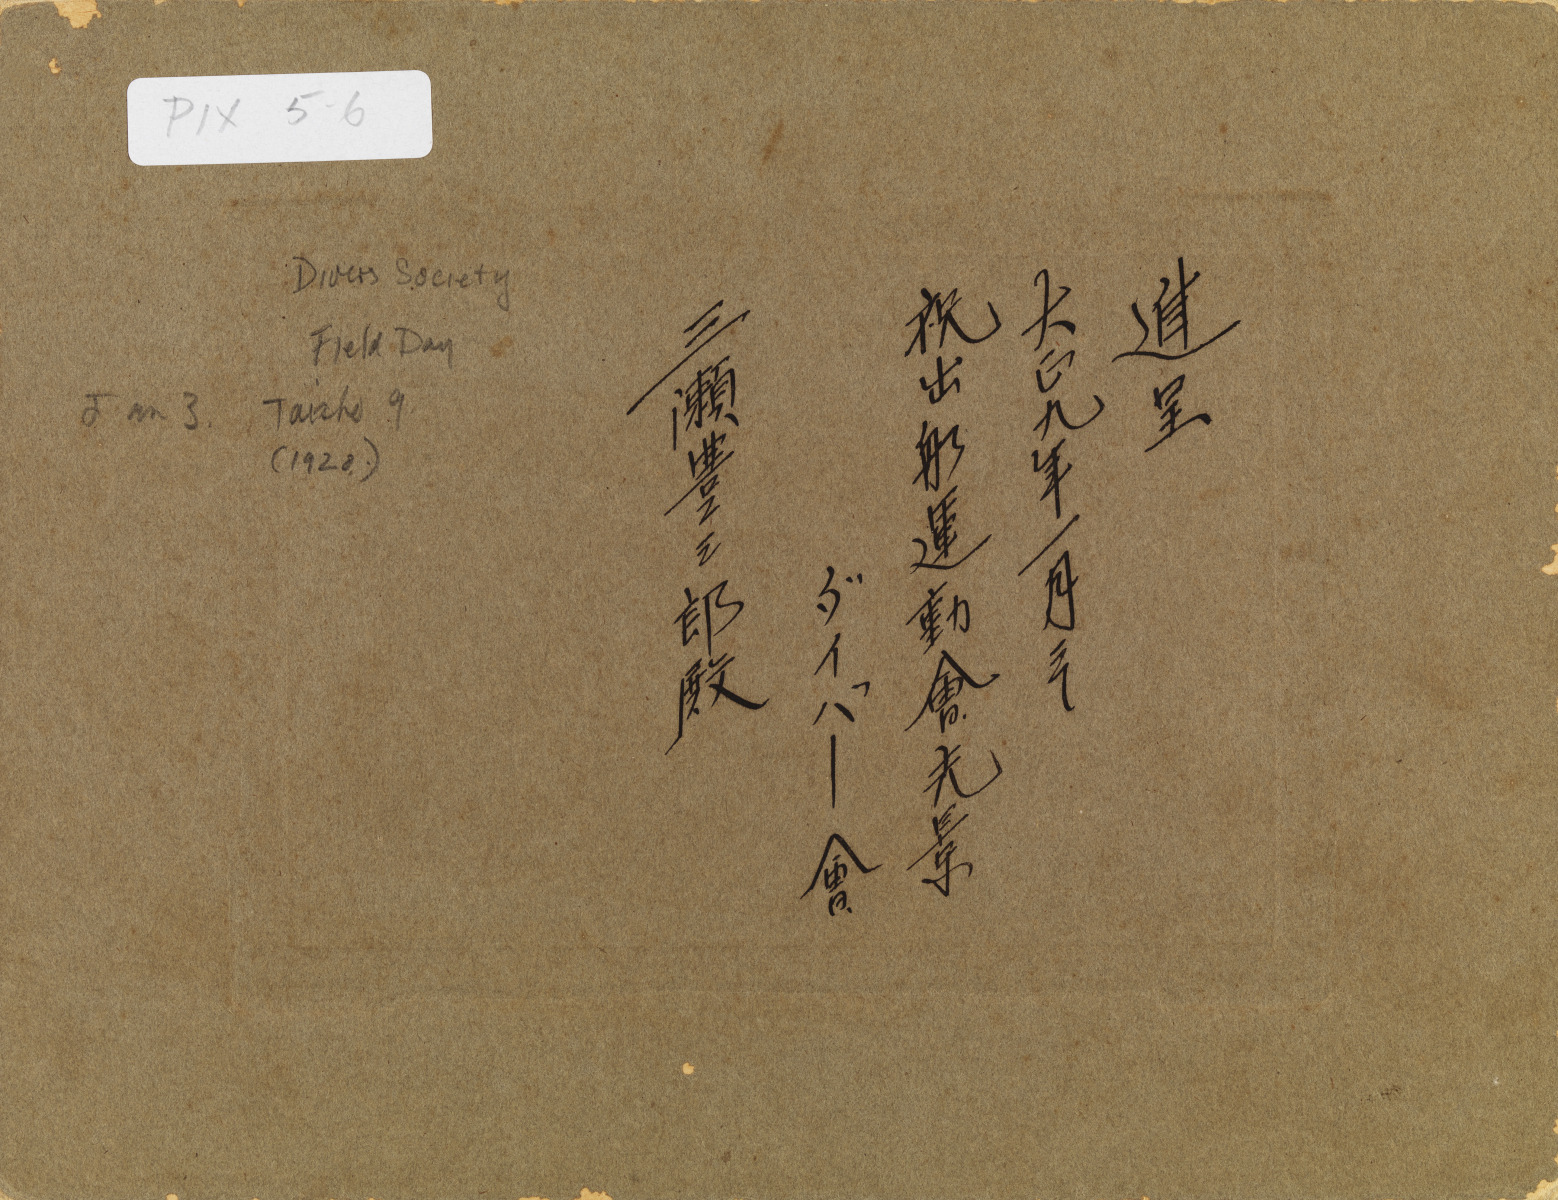 PIX 5-6
進呈
大正九年一月三日
祝出船運動會光景
ダイバー會
三瀬豊三郎殿
Divers Society
Field Day
Jan 3. Taisho 9
(1920.)